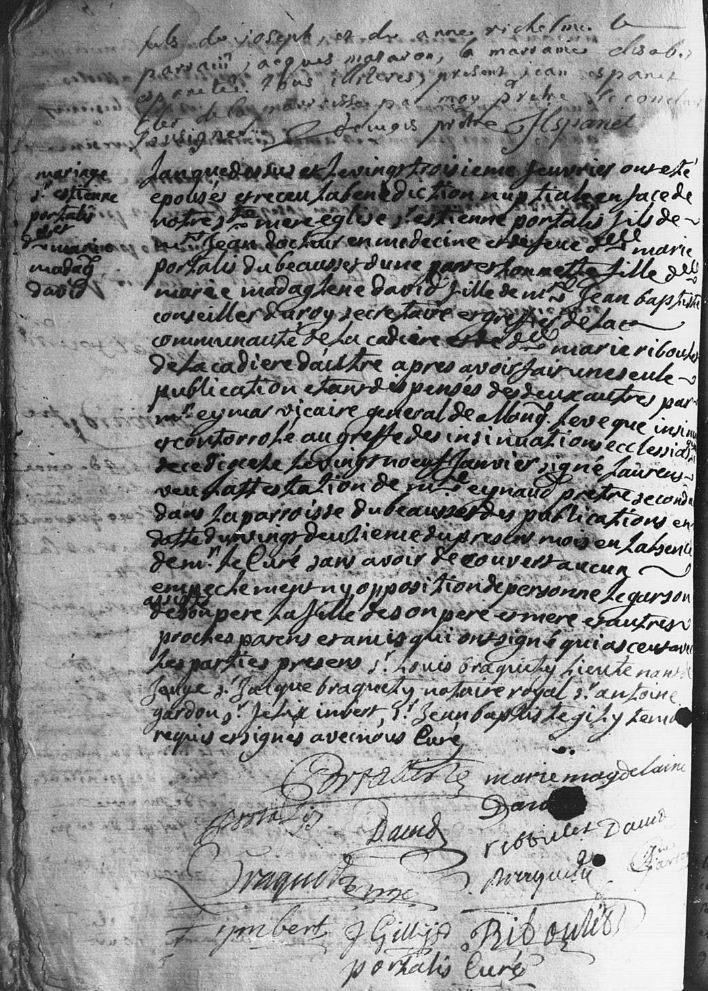 fils de joseph, et de anne richelme le
parrain, jacques mataron, la marraine elisabet
espanet tous illiteres, present jean espanet
clerc de la parroisse par moy prêtre secondaire
soussigné prêtre JEspanet
mariage
sr estienne
portalis
et
dlle marie
madag
david
L'an que dessus et le vingt troisieme fevrier ont esté
epousés et receu la benediction nuptiale en face de
notre ste mere eglise sr estienne portalis fils de
mr Jean docteur en medecine et de feue dlle marie
portalis du beausset d'une part et honnette fille dlle
marie madaglene david fille de mre Jean baptiste
conseiller du roy secretaire et greffier de la
communauté de la cadiere et de dlle marie riboulet
de la cadiere d'autre apres avoir fait une seule
publication et etant dispensés des deux autres par
mre eymar vicaire general de Mong. l'eveque insinué
et contorrolé au greffe des insinuations ecclesiastiques
de ce diocese le vingt noeuf Janvier signé Laurens
veu l'attestation de mre eynaud prêtre secondaire
dans la parroisse du beausset des publications en
datte du vingt deuxieme du present mois en l'absence
de mr le Curé sans avoir decouvert aucun
empechement ny opposition de personne le garson
assisté
de son pere la fille de son pere et mere et autres
proches parens et amis qui ont signé qui a ce ont
les parties presens sr Louis braquety lieutenant de
Juge sr Jacque braquety notaire royal sr antoine
gardon sr felix imbert, sr Jean baptiste gilly temoins
requis et signés avec nous Curé
Portalis
marie magdelaine
David
Portalis
David
riboulet David
Braquety
Braquety
F imbert
J Gilly
Riboulet
portalis Curé